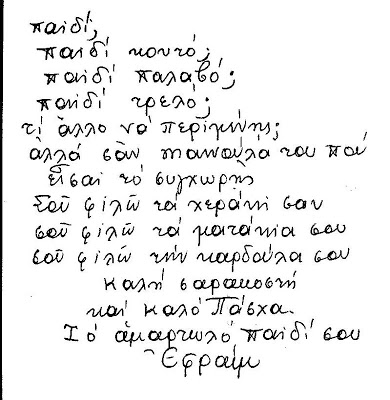 παιδί,
παιδί κουτό;
παιδί παλαβό;
παιδί τρελό;
τί ἄλλο νά περιμένης;
ἀλλά σὰν μανούλα του πού
εἶσαι τό συγχωρῆς
Σοῦ φιλῶ τά χεράκι σαν
σοῦ φιλῶ τά ματάκια σου
σοῦ φιλῶ τήν καρδούλα σου
καλή σαρακοστή
καί καλό Πάσχα.
Τό ἁμαρτωλό παιδί σου
Ἐφραίμ